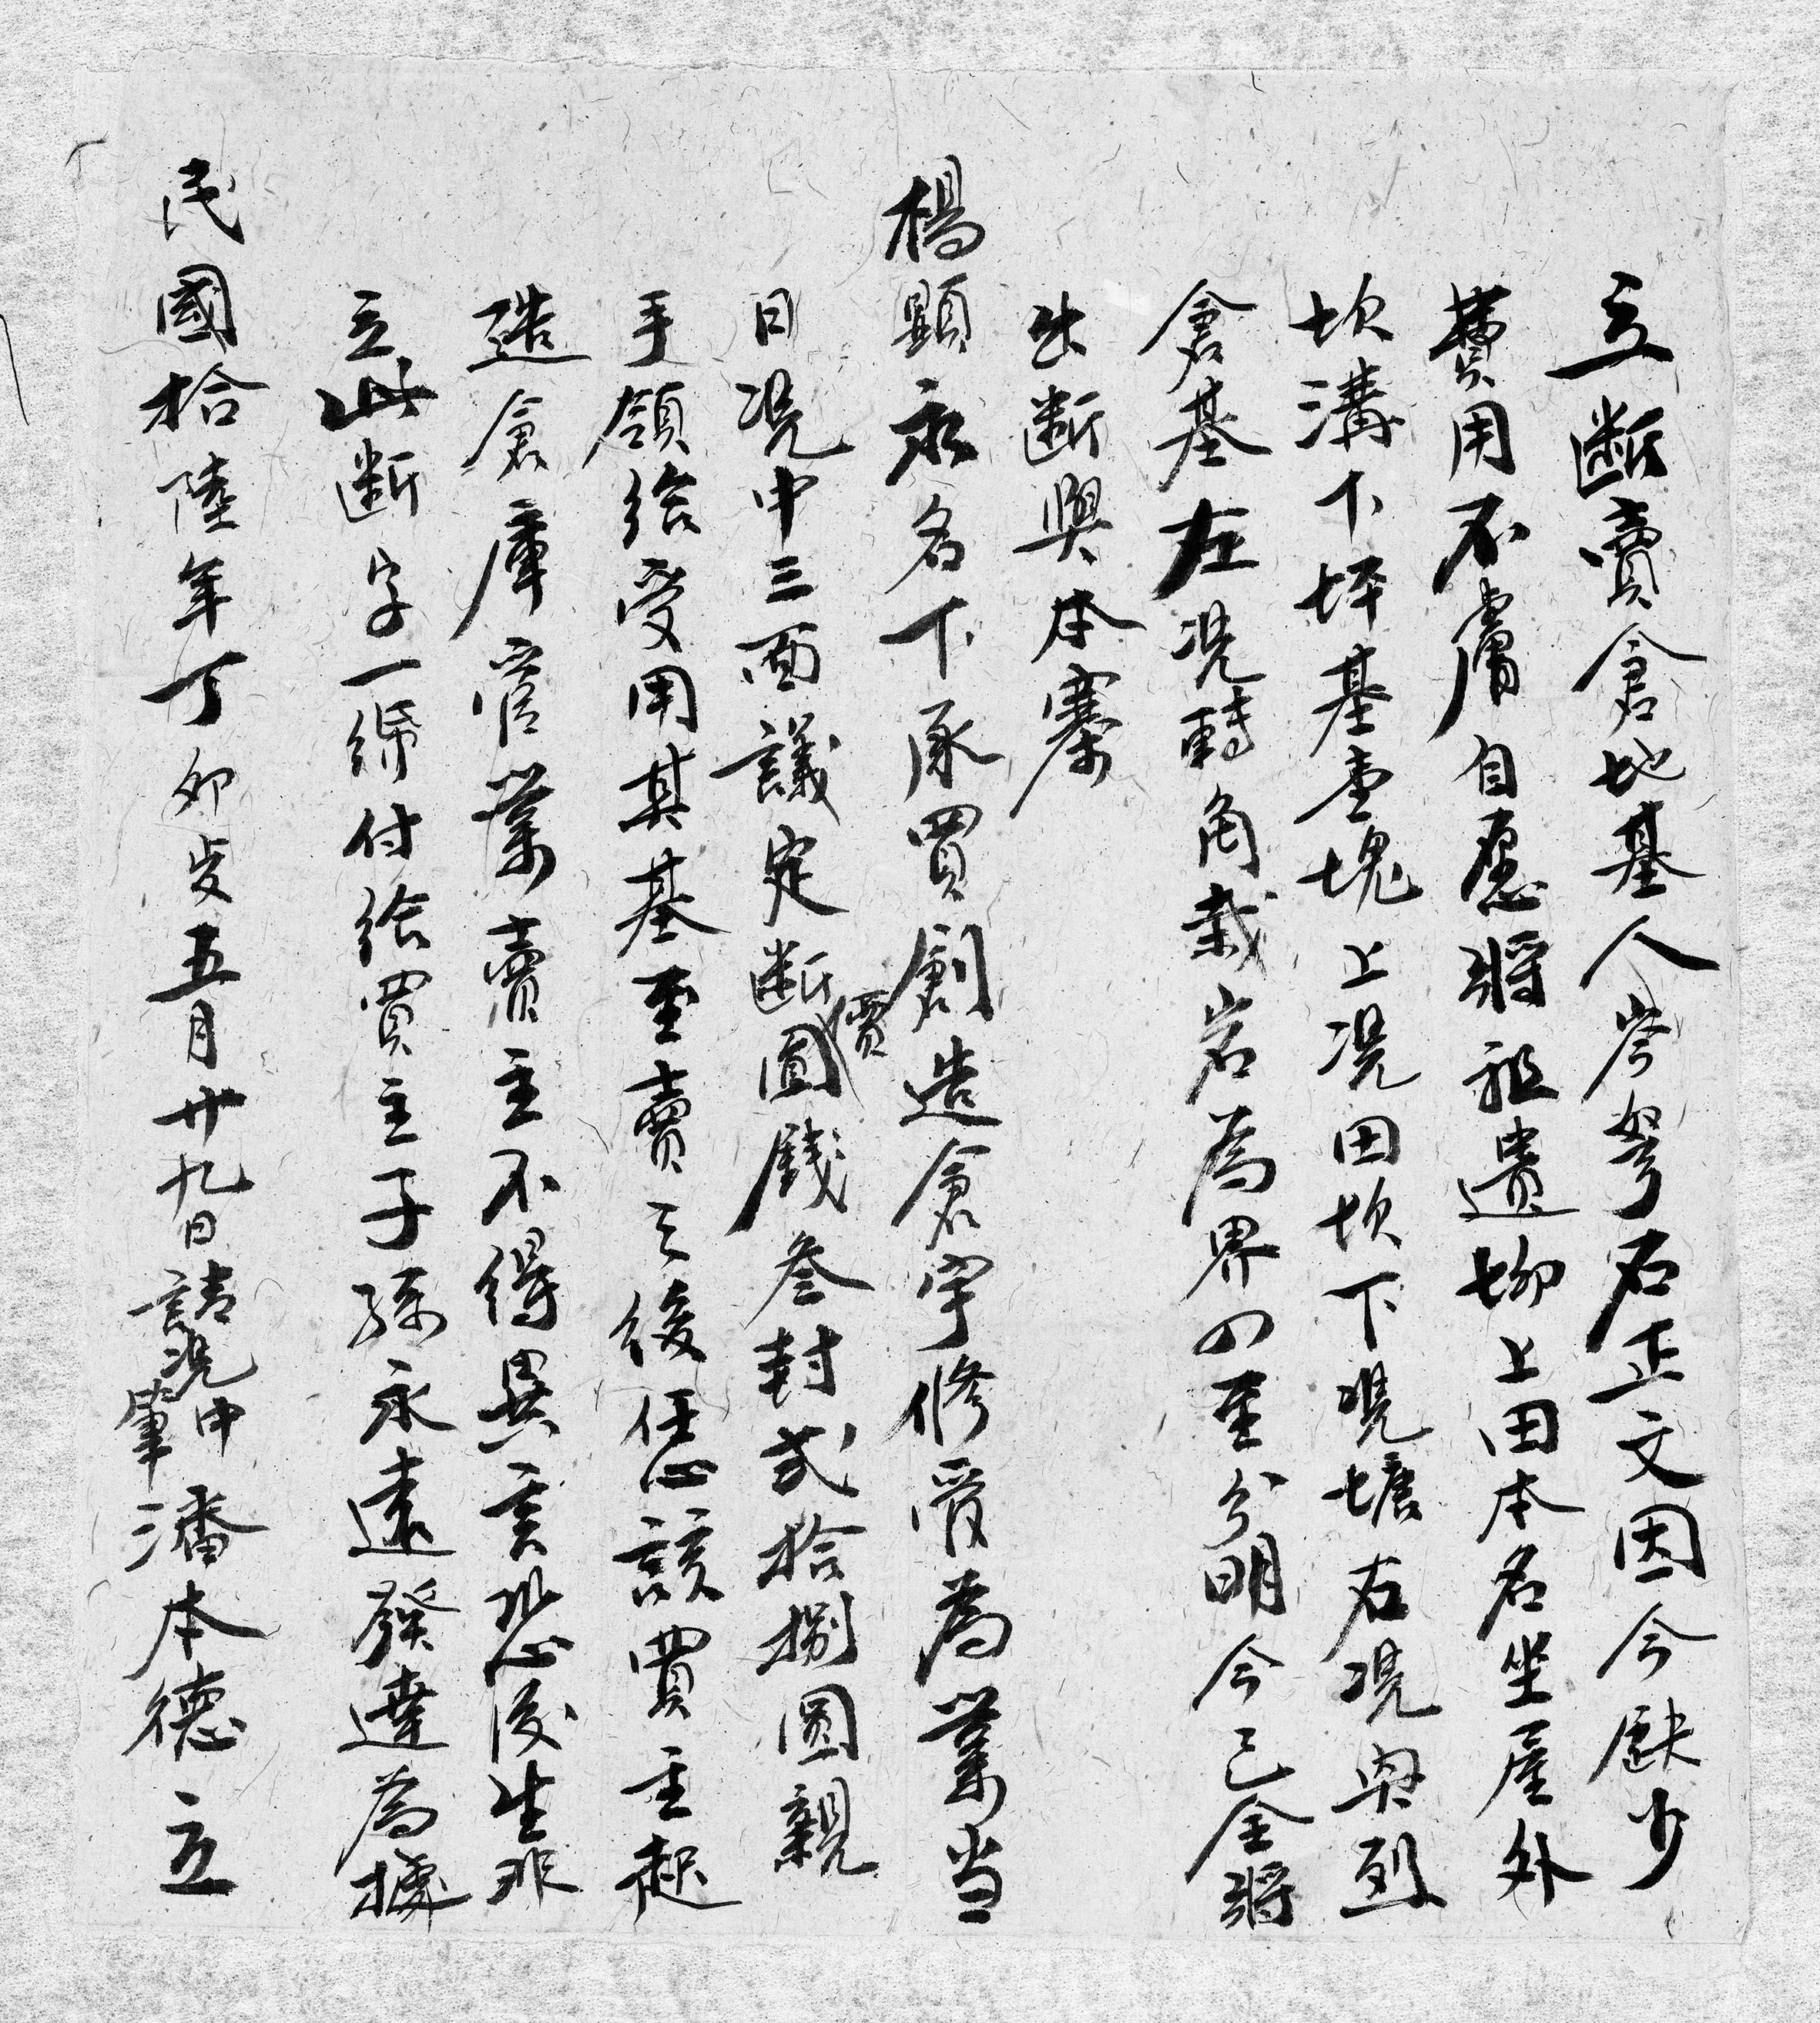 立断賣倉地基人岑弩石正文因今缺少
費用不膚自愿將祖遺坳上田本名坐屋外
坎溝下坪基壹塊上凴田坎下凴墻右凴與烈
倉基左凴轉角栽岩為界四至分明今已全將
出断與本寨
楊顕永名下承買創造倉宇修受為業当
日凴中三面議定断價圓錢叁封弍拾捌圓親
手領给受用其基至賣之後任憑該買主起
造倉庫管業賣主不得異言恐後生非
立此断字一帋付给買主子孫永遠發達為據
民國拾陸年丁卯歲五月廿九日請凴中筆潘本德立